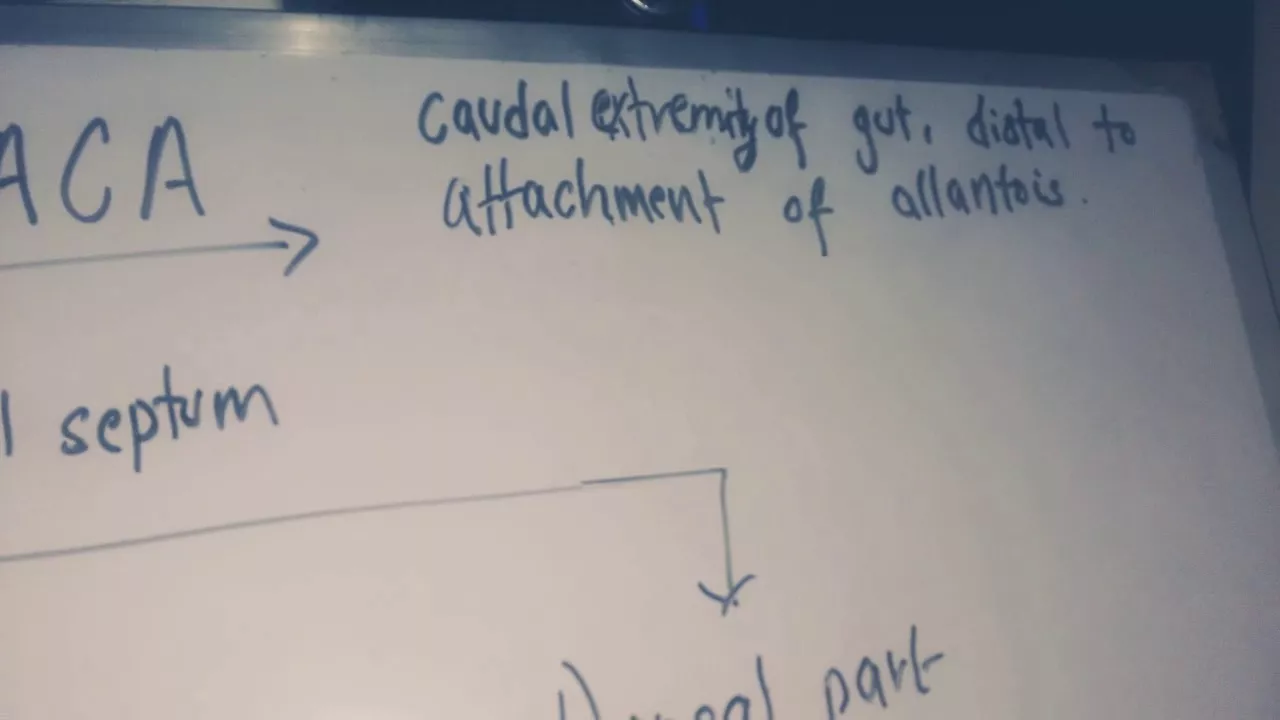 ACA
caudal extremity of gut, distal to
attachment of allantois.
l septum
part